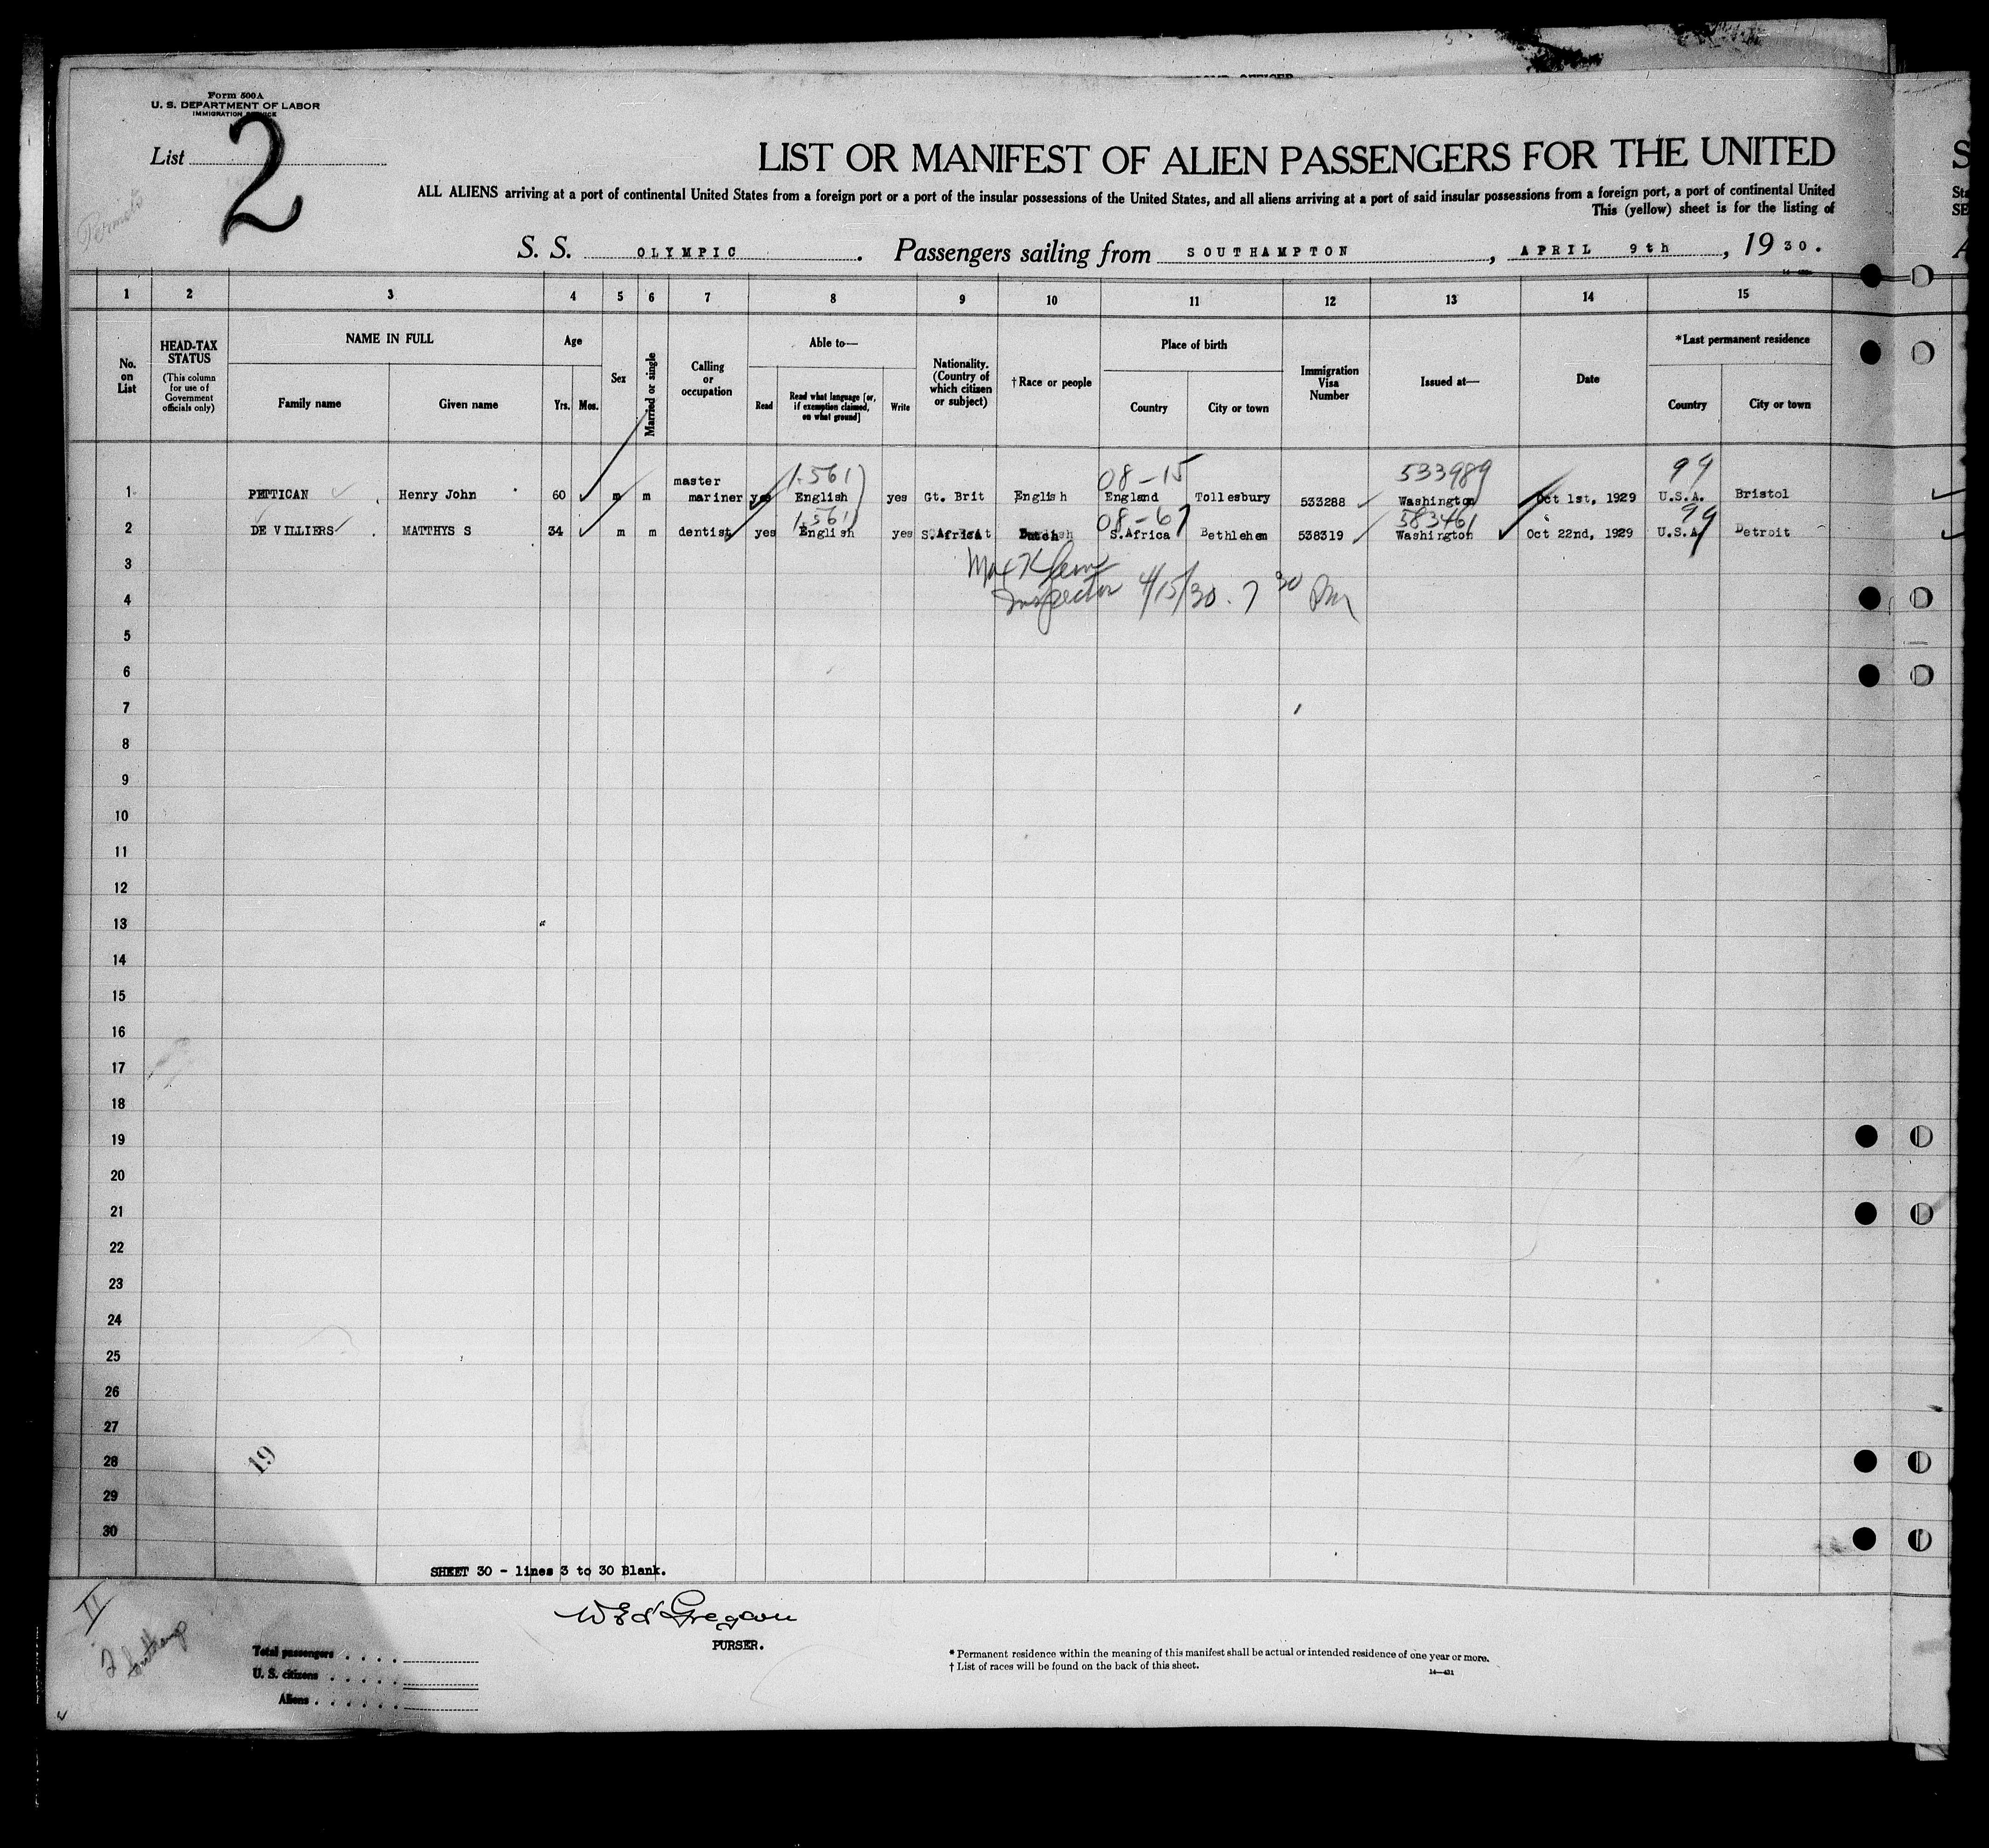 Form 500 A
U. S. DEPARTMENT OF LABOR
IMMIGRATION SERVICE
List 2
LIST OR MANIFEST OF ALIEN PASSENGERS FOR THE UNITED
ALL ALIENS arriving at a port of continental United States from a foreign port or a port of the insular possessions of the United States, and all aliens arriving at a port of said insular possessions from a foreign port, a port of continental United
This (yellow) sheet is for the listing of
S. S. OLYMPIC. Passengers sailing from SOUTHAMPTON, APRIL 9th, 1930.
1 2 3 4 5 6 7 8 9 10 11 12 13 14 15
No. on List
HEAD-TAX STATUS
(This column for use of Government officials only)
NAME IN FULL
Family name Given name
Age
Yrs. Mos.
Sex
Married or single
Calling or occupation
Able to—
Read Read what language [or, if exemption claimed, on what ground] Write
Nationality. (Country of which citizen or subject)
† Race or people
Place of birth
Country City or town
Immigration Visa Number
Issued at—
Date
*Last permanent residence
Country City or town
1.561 08-15 533989 99
1 PETTICAN Henry John 60 m m master mariner yes English yes Gt. Brit English England Tollesbury 533288 Washington Oct 1st, 1929 U.S.A. Bristol
1.561 08-67 583461 99
2 DE VILLIERS MATTHYS S 34 m m dentist yes English yes S.Africa Dutch S.Africa Bethlehem 538319 Washington Oct 22nd, 1929 U.S.A Detroit
3
Inspector 4/15/30. 7 30 Pm
4
5
6
7
8
9
10
11
12
13
14
15
16
17
18
19
20
21
22
23
24
25
26
27
28
19
29
30
SHEET 30 - lines 3 to 30 Blank.
II
2 Southamp
PURSER.
Total passengers
U. S. citizens
Aliens
* Permanent residence within the meaning of this manifest shall be actual or intended residence of one year or more.
† List of races will be found on the back of this sheet.
14—431